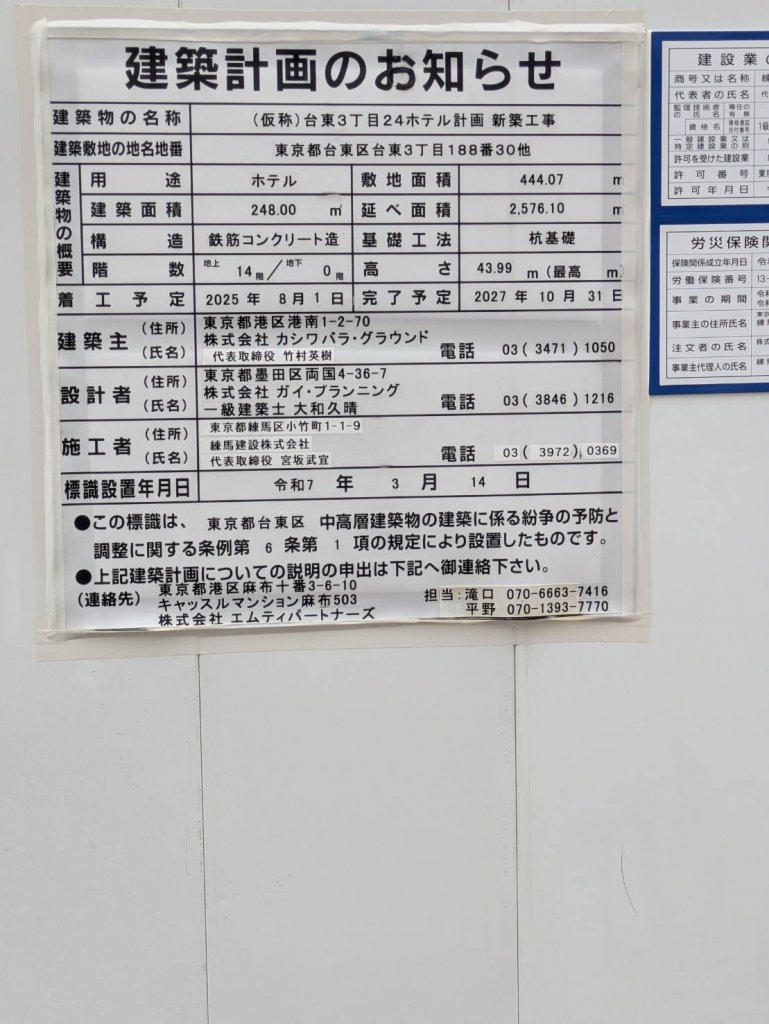 建築計画のお知らせ
建築物の名称 (仮称)台東3丁目24ホテル計画 新築工事
建築敷地の地名地番 東京都台東区台東3丁目188番30他
建築物の概要
用途 ホテル 敷地面積 444.07 ㎡
建築面積 248.00 ㎡ 延べ面積 2,576.10 ㎡
構造 鉄筋コンクリート造 基礎工法 杭基礎
階数 地上 14階/地下 0階 高さ 43.99 m (最高 m)
着工予定 2025年 8月 1日 完了予定 2027年 10月 31日
建築主 (住所) 東京都港区港南1-2-70
(氏名) 株式会社 カシワバラ・グラウンド
代表取締役 竹村英樹 電話 03(3471)1050
設計者 (住所) 東京都墨田区両国4-36-7
(氏名) 株式会社 ガイ・プランニング
一級建築士 大和久晴 電話 03(3846)1216
施工者 (住所) 東京都練馬区小竹町1-1-9
(氏名) 練馬建設株式会社
代表取締役 宮坂武宜 電話 03(3972)0369
標識設置年月日 令和7 年 3 月 14 日
●この標識は、 東京都台東区 中高層建築物の建築に係る紛争の予防と
調整に関する条例第 6 条第 1 項の規定により設置したものです。
●上記建築計画についての説明の申出は下記へ御連絡下さい。
(連絡先) 東京都港区麻布十番3-6-10
キャッスルマンション麻布503
株式会社 エムティパートナーズ
担当:滝口 070-6663-7416
平野 070-1393-7770
建設業の
商号又は名称 練
代表者の氏名 代
監理技術者の氏名 専任の有無
資格名 資格者証交付番号 1級
一般建設業又は特定建設業の別
許可を受けた建設業
許可番号 東京
許可年月日
労災保険関
保険関係成立年月日 令和
労働保険番号 13-
事業の期間 令和
令和
事業主の住所氏名 東京
練馬
注文者の氏名 株式
事業主代理人の氏名 練馬